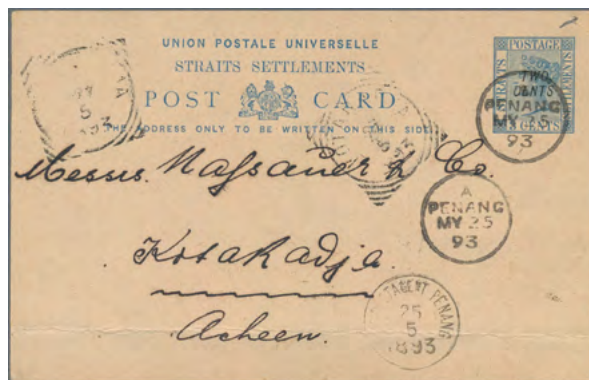 UNION POSTALE UNIVERSELLE
STRAITS SETTLEMENTS
POST CARD
THE ADDRESS ONLY TO BE WRITTEN ON THIS SIDE
POSTAGE
STRAITS
TWO
CENTS
CENTS
PENANG
MY 25
93
Messrs. Massauer & Co.
A
PENANG
MY 25
93
Kota Radja
Acheen.
POSTAGENT PENANG
25
5
1893